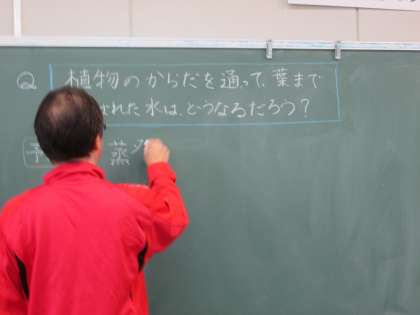 Q 植物のからだを通って、葉まで
された水は、どうなるだろう？
予 蒸